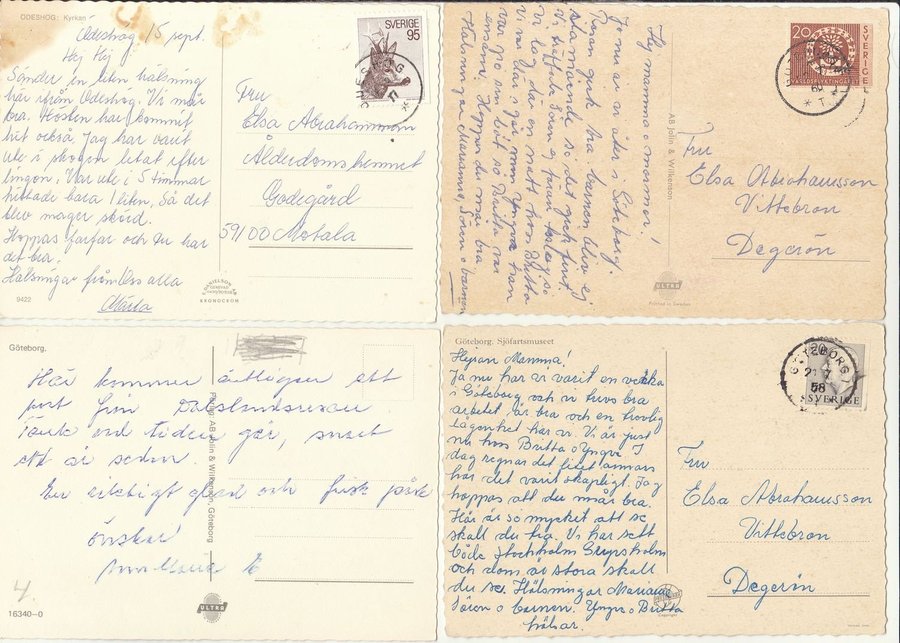 ÖDESHÖG: Kyrkan
Ödeshög 15 sept.
Hej Hej
Sänder en liten hälsning
här ifrån Ödeshög. Vi mår
bra. Hösten har kommit
hit också. Jag har varit
ute i skogen letat efter
lingon. Var ute i 5 timmar
hittade bara 1 liten, Så det
blev mager skörd.
Hoppas farfar och du har
det bra.
Hälsningar från Oss alla
Märta
9422
KRONOCROM
SVERIGE
95
Fru
Elsa Abrahamsson
Ålderdomshemmet
Godegård
59100 Motala
Hej mamma o mormor!
Ja nu är vi åter i Göteborg.
Resan gick bra barnen blev ej
åkamående så det gick fint
Vi träffade Sören
vi låg där en natt hos Britta
o
Hoppas du mår bra
Hälsningar Marianne, Sören o barnen
AB Jolin & Wilkenson
ULTRA
Printed in Sweden
20
SVERIGE
Fru
Elsa Abrahamsson
Vittebron
Degerön
Göteborg.
Här kommer äntligen ett
kort från
Tänk vad tiden går, snart
ett år sedan.
En riktigt glad och frisk påsk
önskar
16340-0
4.
AB Jolin & Wilkenson, Göteborg
ULTRA
Göteborg. Sjöfartsmuseet
Hejsan Mamma!
Ja nu har vi varit en vecka
i Göteborg och vi trivs bra
arbetet är bra och en trevlig
lägenhet har vi. Vi är just
nu hos Britta o Yngve. I
dag regnar det lite annars
har det varit skapligt. Jag
hoppas att du mår bra.
Här är så mycket att se
skall du tro. Vi har sett
både Stockholm Gripsholm
och dom är stora skall
du se. Hälsningar Marianne
Sören o barnen. Yngve o Britta
hälsar.
GÖTEBORG 1
21 7
58
20
SVERIGE
Fru
Elsa Abrahamsson
Vittebron
Degerön